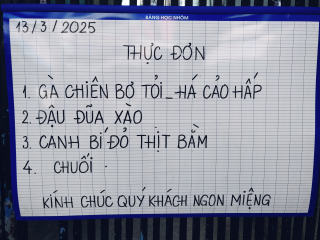 BẢNG HỌC NHÓM
13/3/2025
THỰC ĐƠN
1. GÀ CHIÊN BƠ TỎI_HÁ CẢO HẤP
2. ĐẬU ĐŨA XÀO
3. CANH BÍ ĐỎ THỊT BẰM
4. CHUỐI
KÍNH CHÚC QUÝ KHÁCH NGON MIỆNG